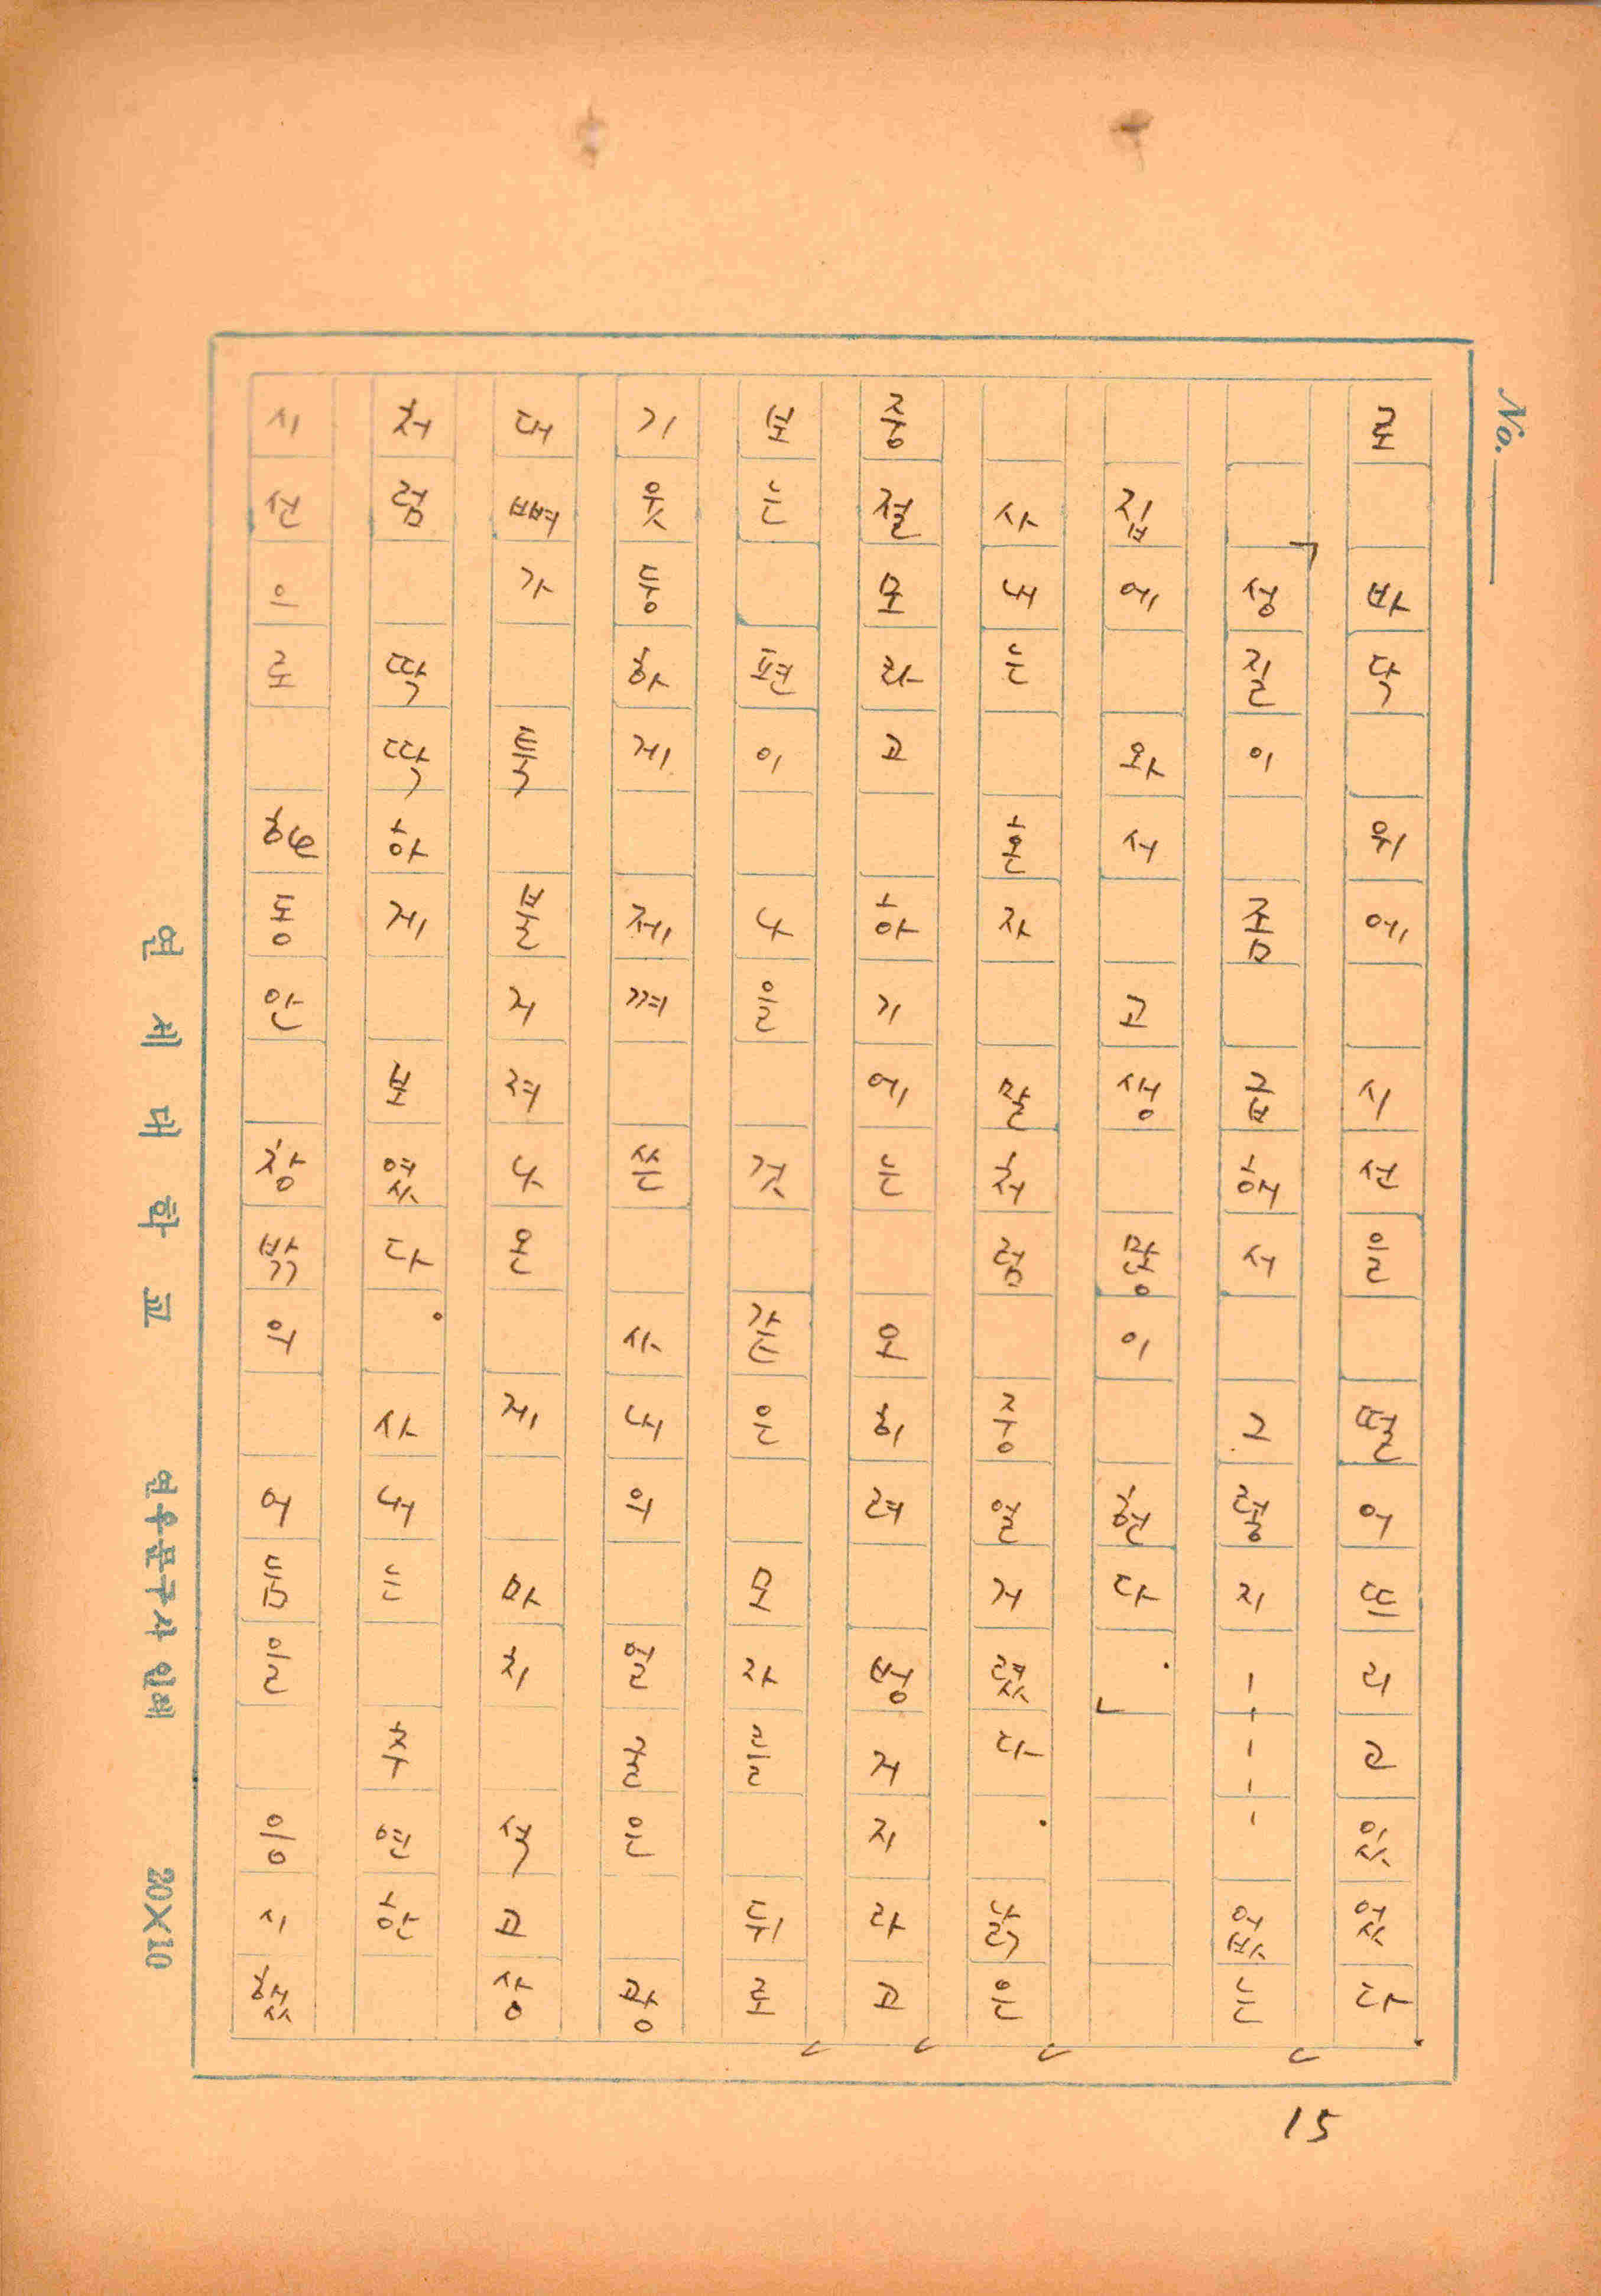 로 바닥 위에 시선을 떨어뜨리고 있었다.
「성질이 좀 급해서 그렇지----- 없는
집에 와서 고생 많이 한다.」
사내는 혼자 말처럼 중얼거렸다. 낡은
중절모라고 하기에는 오히려 벙거지라고
보는 편이 나을 것 같은 모자를 뒤로
기웃둥하게 제껴 쓴 사내의 얼굴은 광
대뼈가 툭 불거져나온 게 마치 석고상
처럼 딱딱하게 보였다. 사내는 추연한
시선으로 한동안 창밖의 어둠을 응시했
No.
15
연세대학교 연우문구사 인쇄 20X10